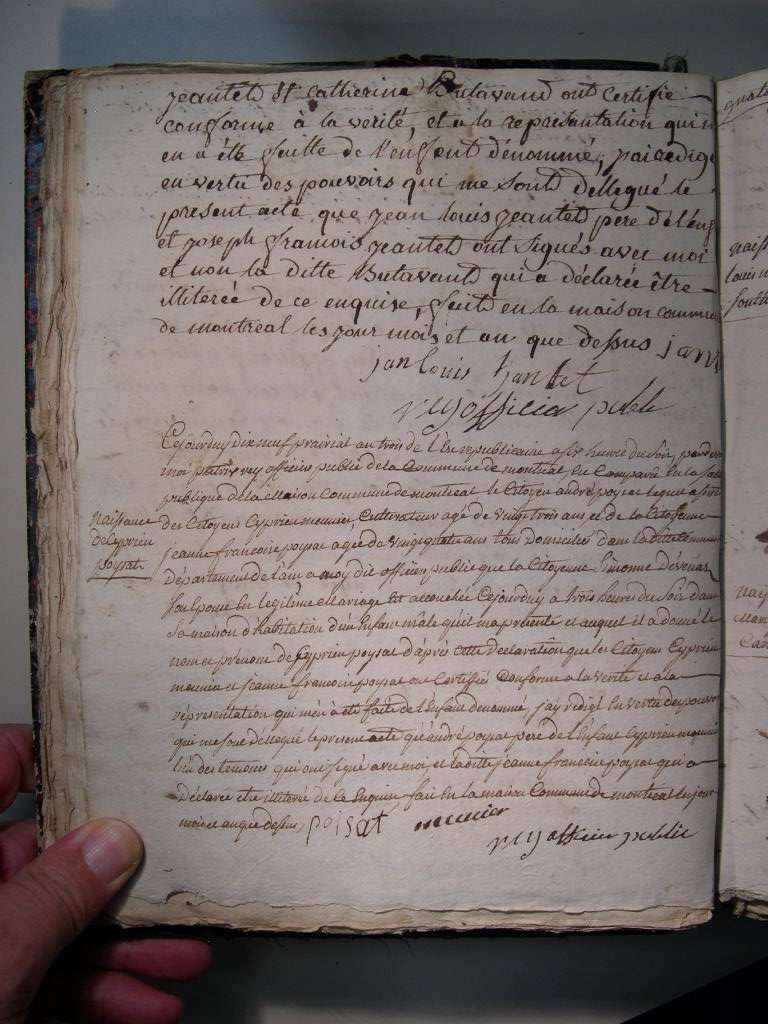 jeantet et catherine Butavand ont certifie
conforme à la verité, et a la representation qui m
en a été faitte de l'enfent dénommé, j'ai redigé
en vertu des pouvoirs qui me sont dellegué le
présent acte que jean louis jeantet père de l'enf
et joseph framois jeantet ont signés avec moi
et non la ditte Butavant qui a déclarée être
illiterée de ce enquise, fait en la maison commune
de montréal les jour mois et an que dessus
jan louis jantet
rey officier public
Cejourduy dix neuf prairial an trois de l'Ere republicaine a six heure du Soir, pardevant
moi rey officier public de la Commune de montréal Est Comparu En la Salle
publique de la Maison Commune de montréal le Citoyen andré poysat lequel assisté
des Citoyens Cyprien meunier, Cultivateur agé de vingt trois ans et de la Citoyenne
jeanne francoise poysat agée de vingt quatre ans tous Domiciliés dans la ditte Commune
Département de l'ain a moy dit officier public que la Citoyenne Simonne
Son Epouse En legitime Mariage Est accouchée Cejourduy a trois heures du Soir Dans
Sa maison d'habitation d'un Enfant mâle qu'il ma présenté et auquel il a donné le
nom et prénom de Cyprien poysat d'après cette Déclaration que les Citoyens Cyprien
meunier et jeanne francoise poysat ont Certiffié Conforme a la verité et a la
réprésentation qui m'en à été faite de l'Enfant dénommé, j'ay redigé En vertu des pouvoirs
qui me sont dellegué le present acte qu'andré poysat père de l'Enfant Cyprien meunier
L'un des temoins qui ont signé avec moi, et la ditte jeanne francoise poysat qui a
Déclarée etre illiterée de Ce Enquise, fait En la maison Commune de montréal les jour
mois et an que dessus, poisat meunier
rey officier public
Naissance
de Cyprien
poysat